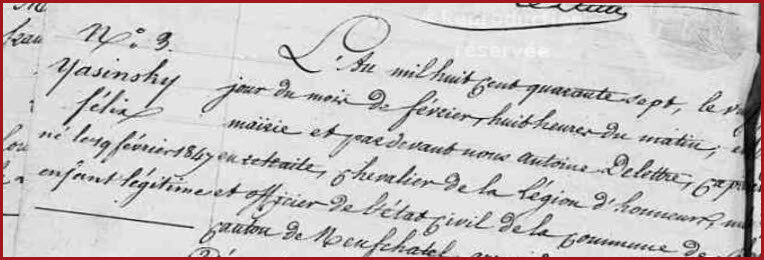 Reproduction
réservée
N.° 3.
Yasinsky
félix
né le 19 février 1847
enfant légitime
L'An mil huit cent quarante sept, le
jour du mois de février, huit heures du matin;
mairie et pardevant nous antoine Delottre,
en retraite, chevalier de la légion d'honneur,
et officier de l'état civil de la commune de
canton de Neufchatel,